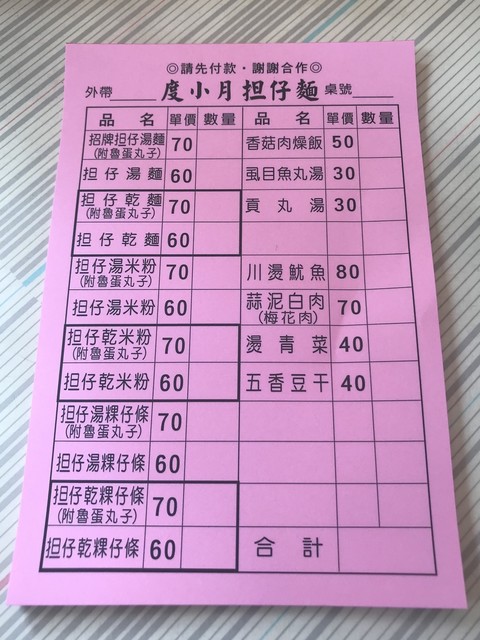 ◎請先付款・謝謝合作◎
外帶____ 度小月担仔麵 桌號____
品名 單價 數量 品名 單價 數量
招牌担仔湯麵 70 香菇肉燥飯 50
(附魯蛋丸子)
担仔湯麵 60 虱目魚丸湯 30
担仔乾麵 70 貢丸湯 30
(附魯蛋丸子)
担仔乾麵 60
担仔湯米粉 70 川燙魷魚 80
(附魯蛋丸子)
担仔湯米粉 60 蒜泥白肉 70
(梅花肉)
担仔乾米粉 70 燙青菜 40
(附魯蛋丸子)
担仔乾米粉 60 五香豆干 40
担仔湯粿仔條 70
(附魯蛋丸子)
担仔湯粿仔條 60
担仔乾粿仔條 70
(附魯蛋丸子)
担仔乾粿仔條 60 合計